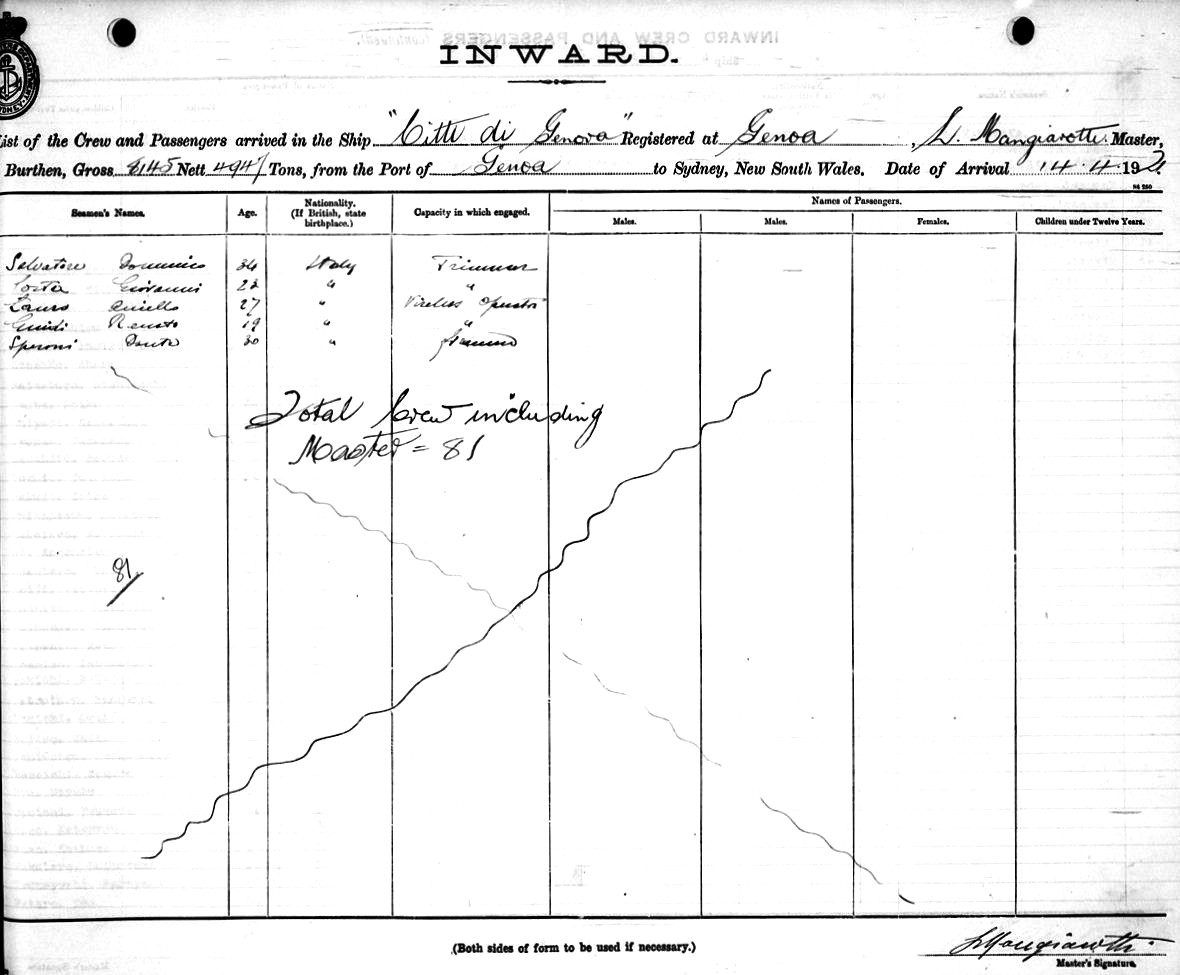 INWARD.
List of the Crew and Passengers arrived in the Ship "Citta di Genova" Registered at Genoa, L. Mangiarotti Master,
Burthen, Gross 8145 Nett 4947 Tons, from the Port of Genoa to Sydney, New South Wales. Date of Arrival 14.4.192
Seamen's Names. Age. Nationality. (If British, state birthplace.) Capacity in which engaged. Names of Passengers.
Males. Males. Females. Children under Twelve Years.
Salvatore Domenico 34 Italy Trimmer
Costa Giovanni 22 " "
Lauro Aniello 27 " Wireless Operator
Guidi Renato 19 " "
Speroni Dante 30 "
Total Crew including
Master = 81
81
(Both sides of form to be used if necessary.)
L Mangiarotti
Master's Signature.